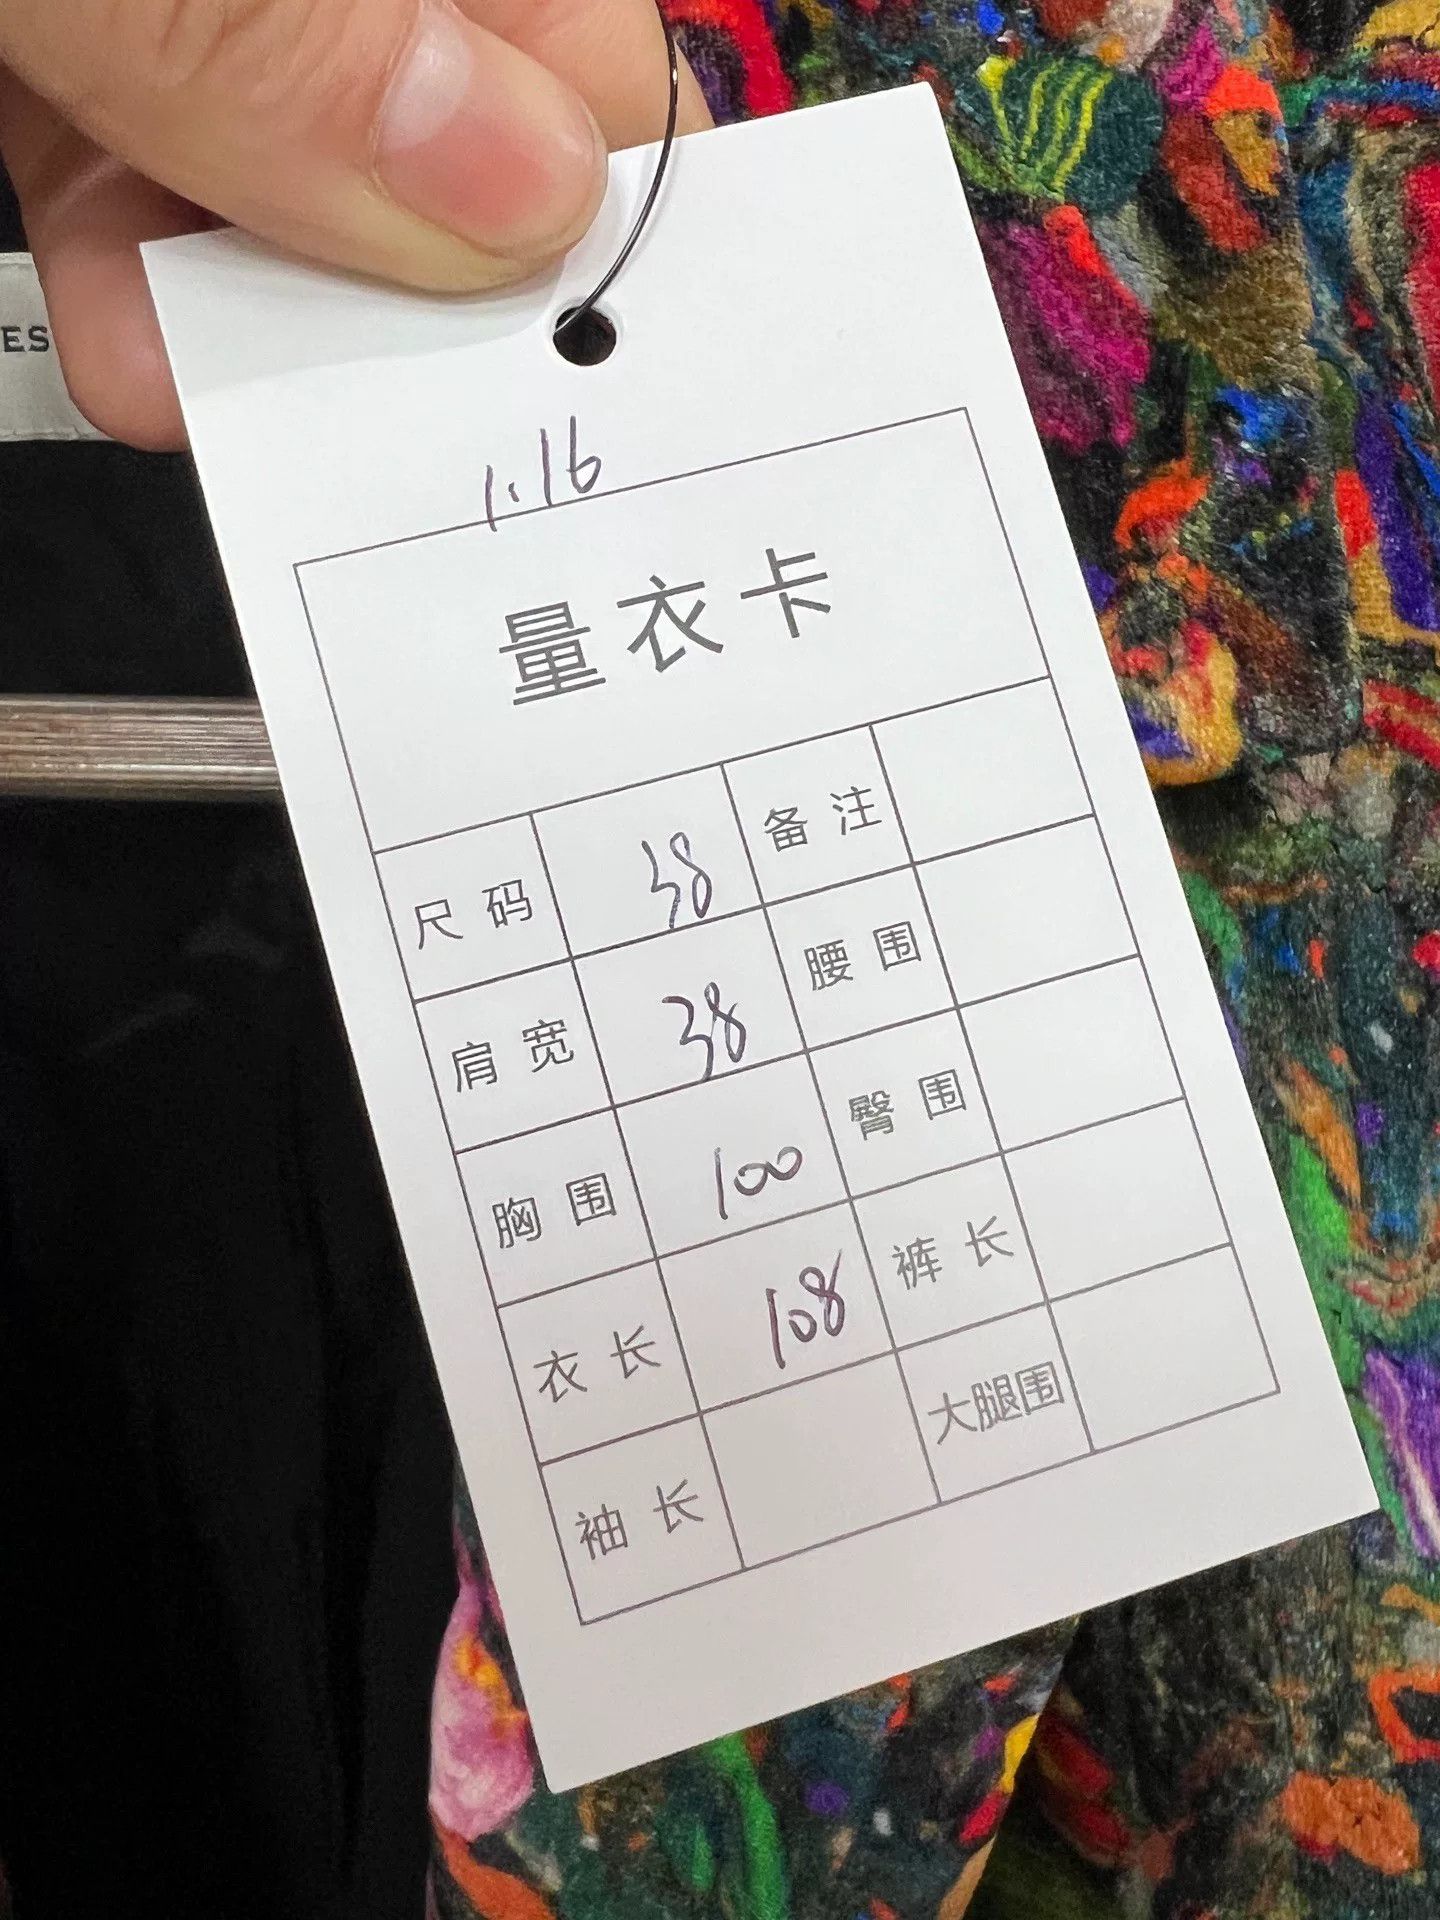 ES
1.16
量衣卡
尺码 38 备注
肩宽 38 腰围
胸围 100 臀围
衣长 108 裤长
袖长 大腿围